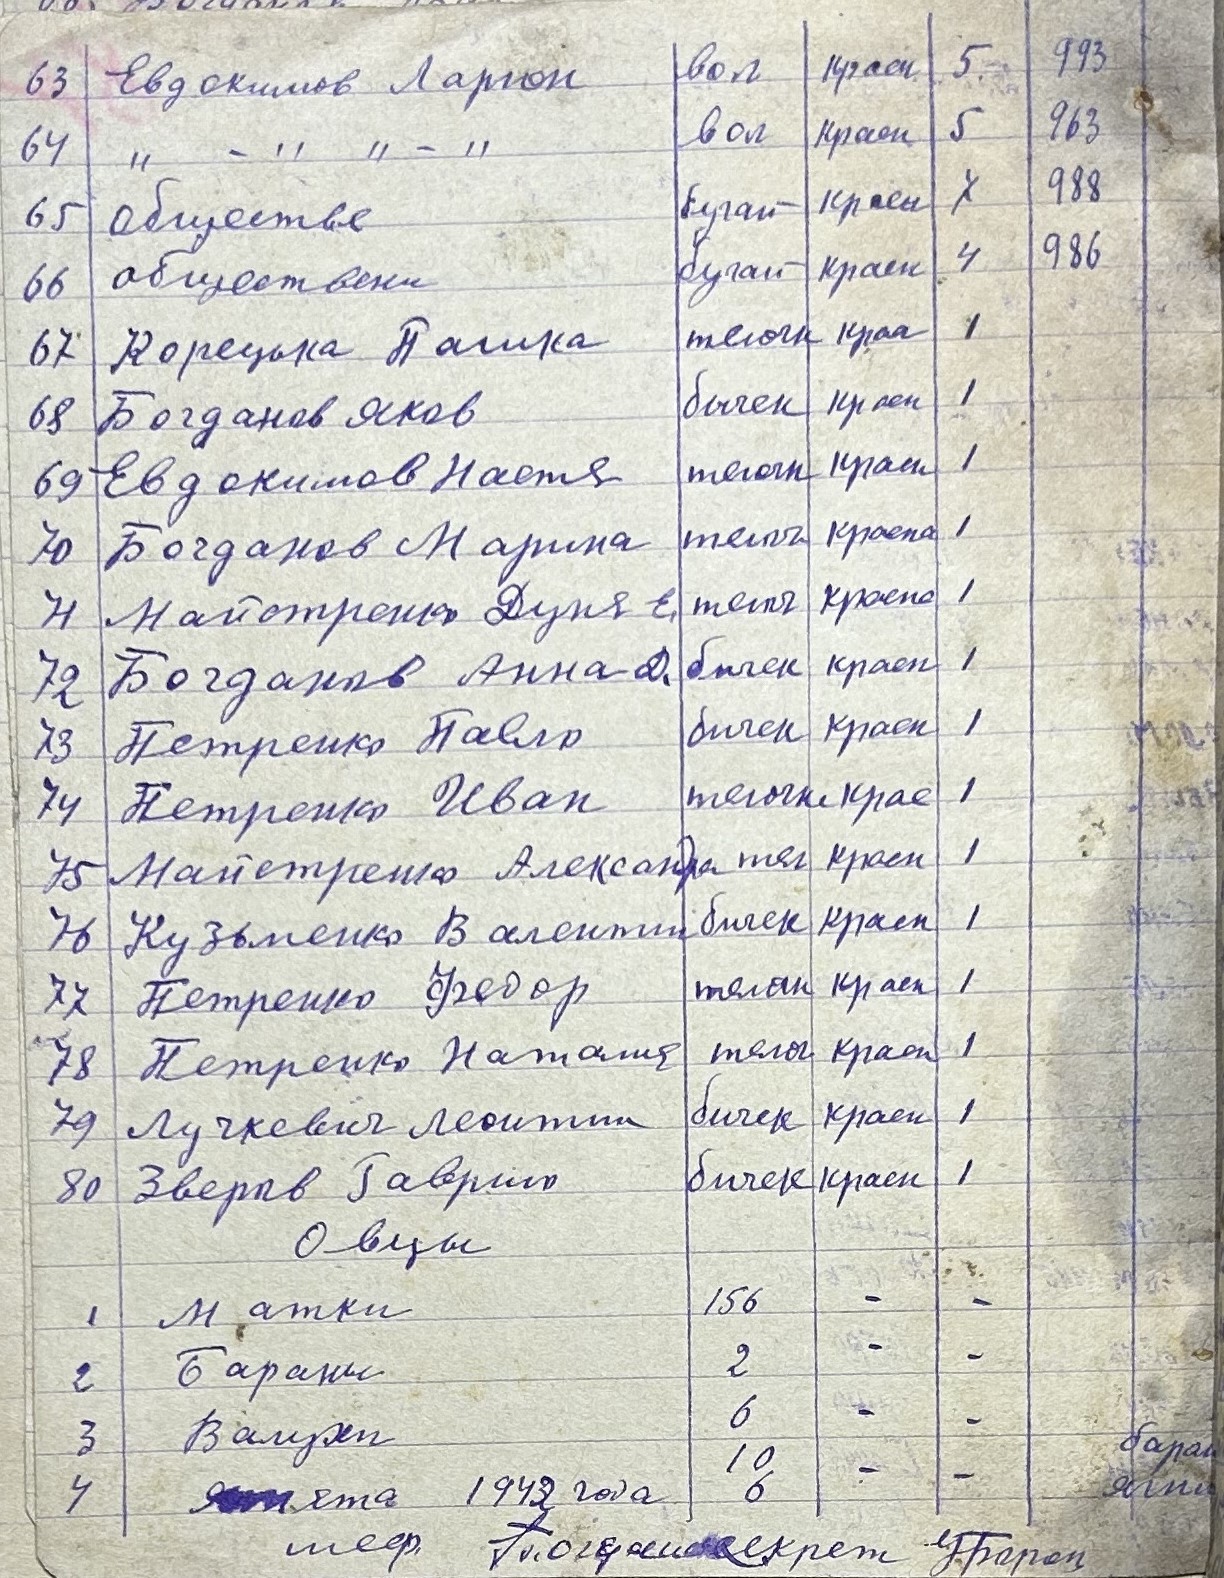 63 Евдокимов Ларион вол красн 5 993
64 " - " " - " вол красн 5 963
65 обществе бугай красн 7 988
66 обществени бугай красн 4 986
67 Корецька Пашка телочк краа 1
68 Богданов Яков бычек красн 1
69 Евдокимов Настя телочк красн 1
70 Богданов Марина телоч красна 1
71 Майстренко Дуня Е. телоч красна 1
72 Богданов Анна Д. бычек красн 1
73 Петренко Павло бичек красн 1
74 Петренко Иван телочк крас 1
75 Майстренко Александра тел красн 1
76 Кузьменко Валентин бичек красн 1
77 Петренко Федор телочк красн 1
78 Петренко Наталия телоч красн 1
79 Лучкевич Леонтии бичек красн 1
80 Зверыв Гаврило бичек красн 1
Овцы
1 Матки 156 - -
2 Бараны 2 - -
3 Валухи 6 - -
баран
10
4 ята 1942 года 6 - -
секрет